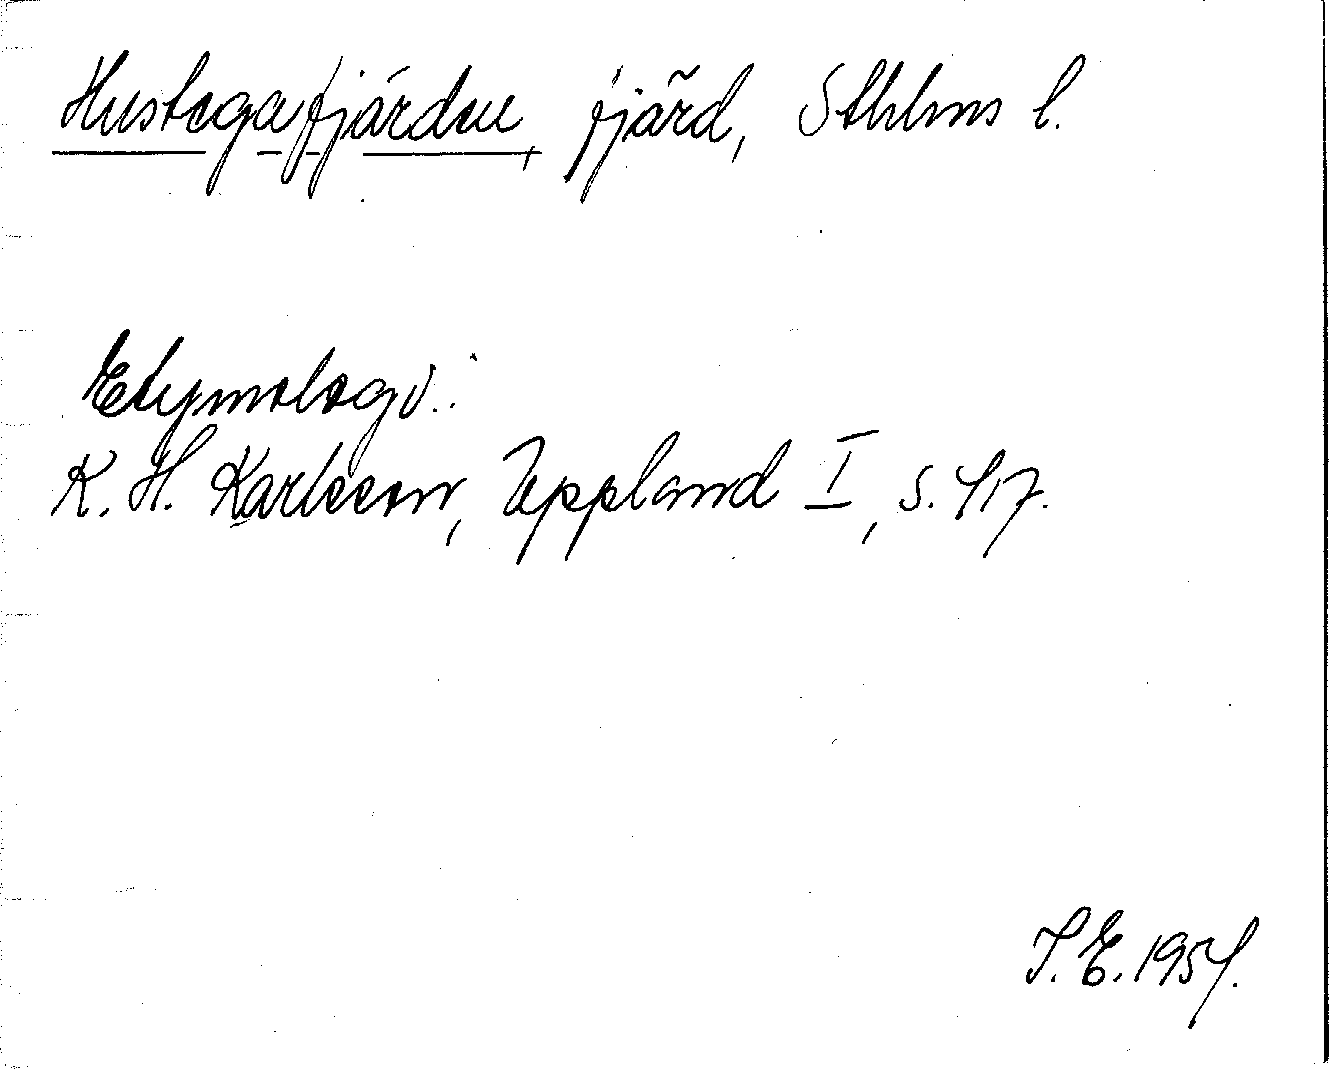 Hustegafjärden, fjärd, Sthlms l.
Etymologi:
K. H. Karlsson, Uppland I, s. 417.
I. E. 1954.